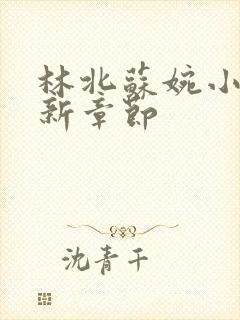 林北蘇婉小
新章節
沈青千